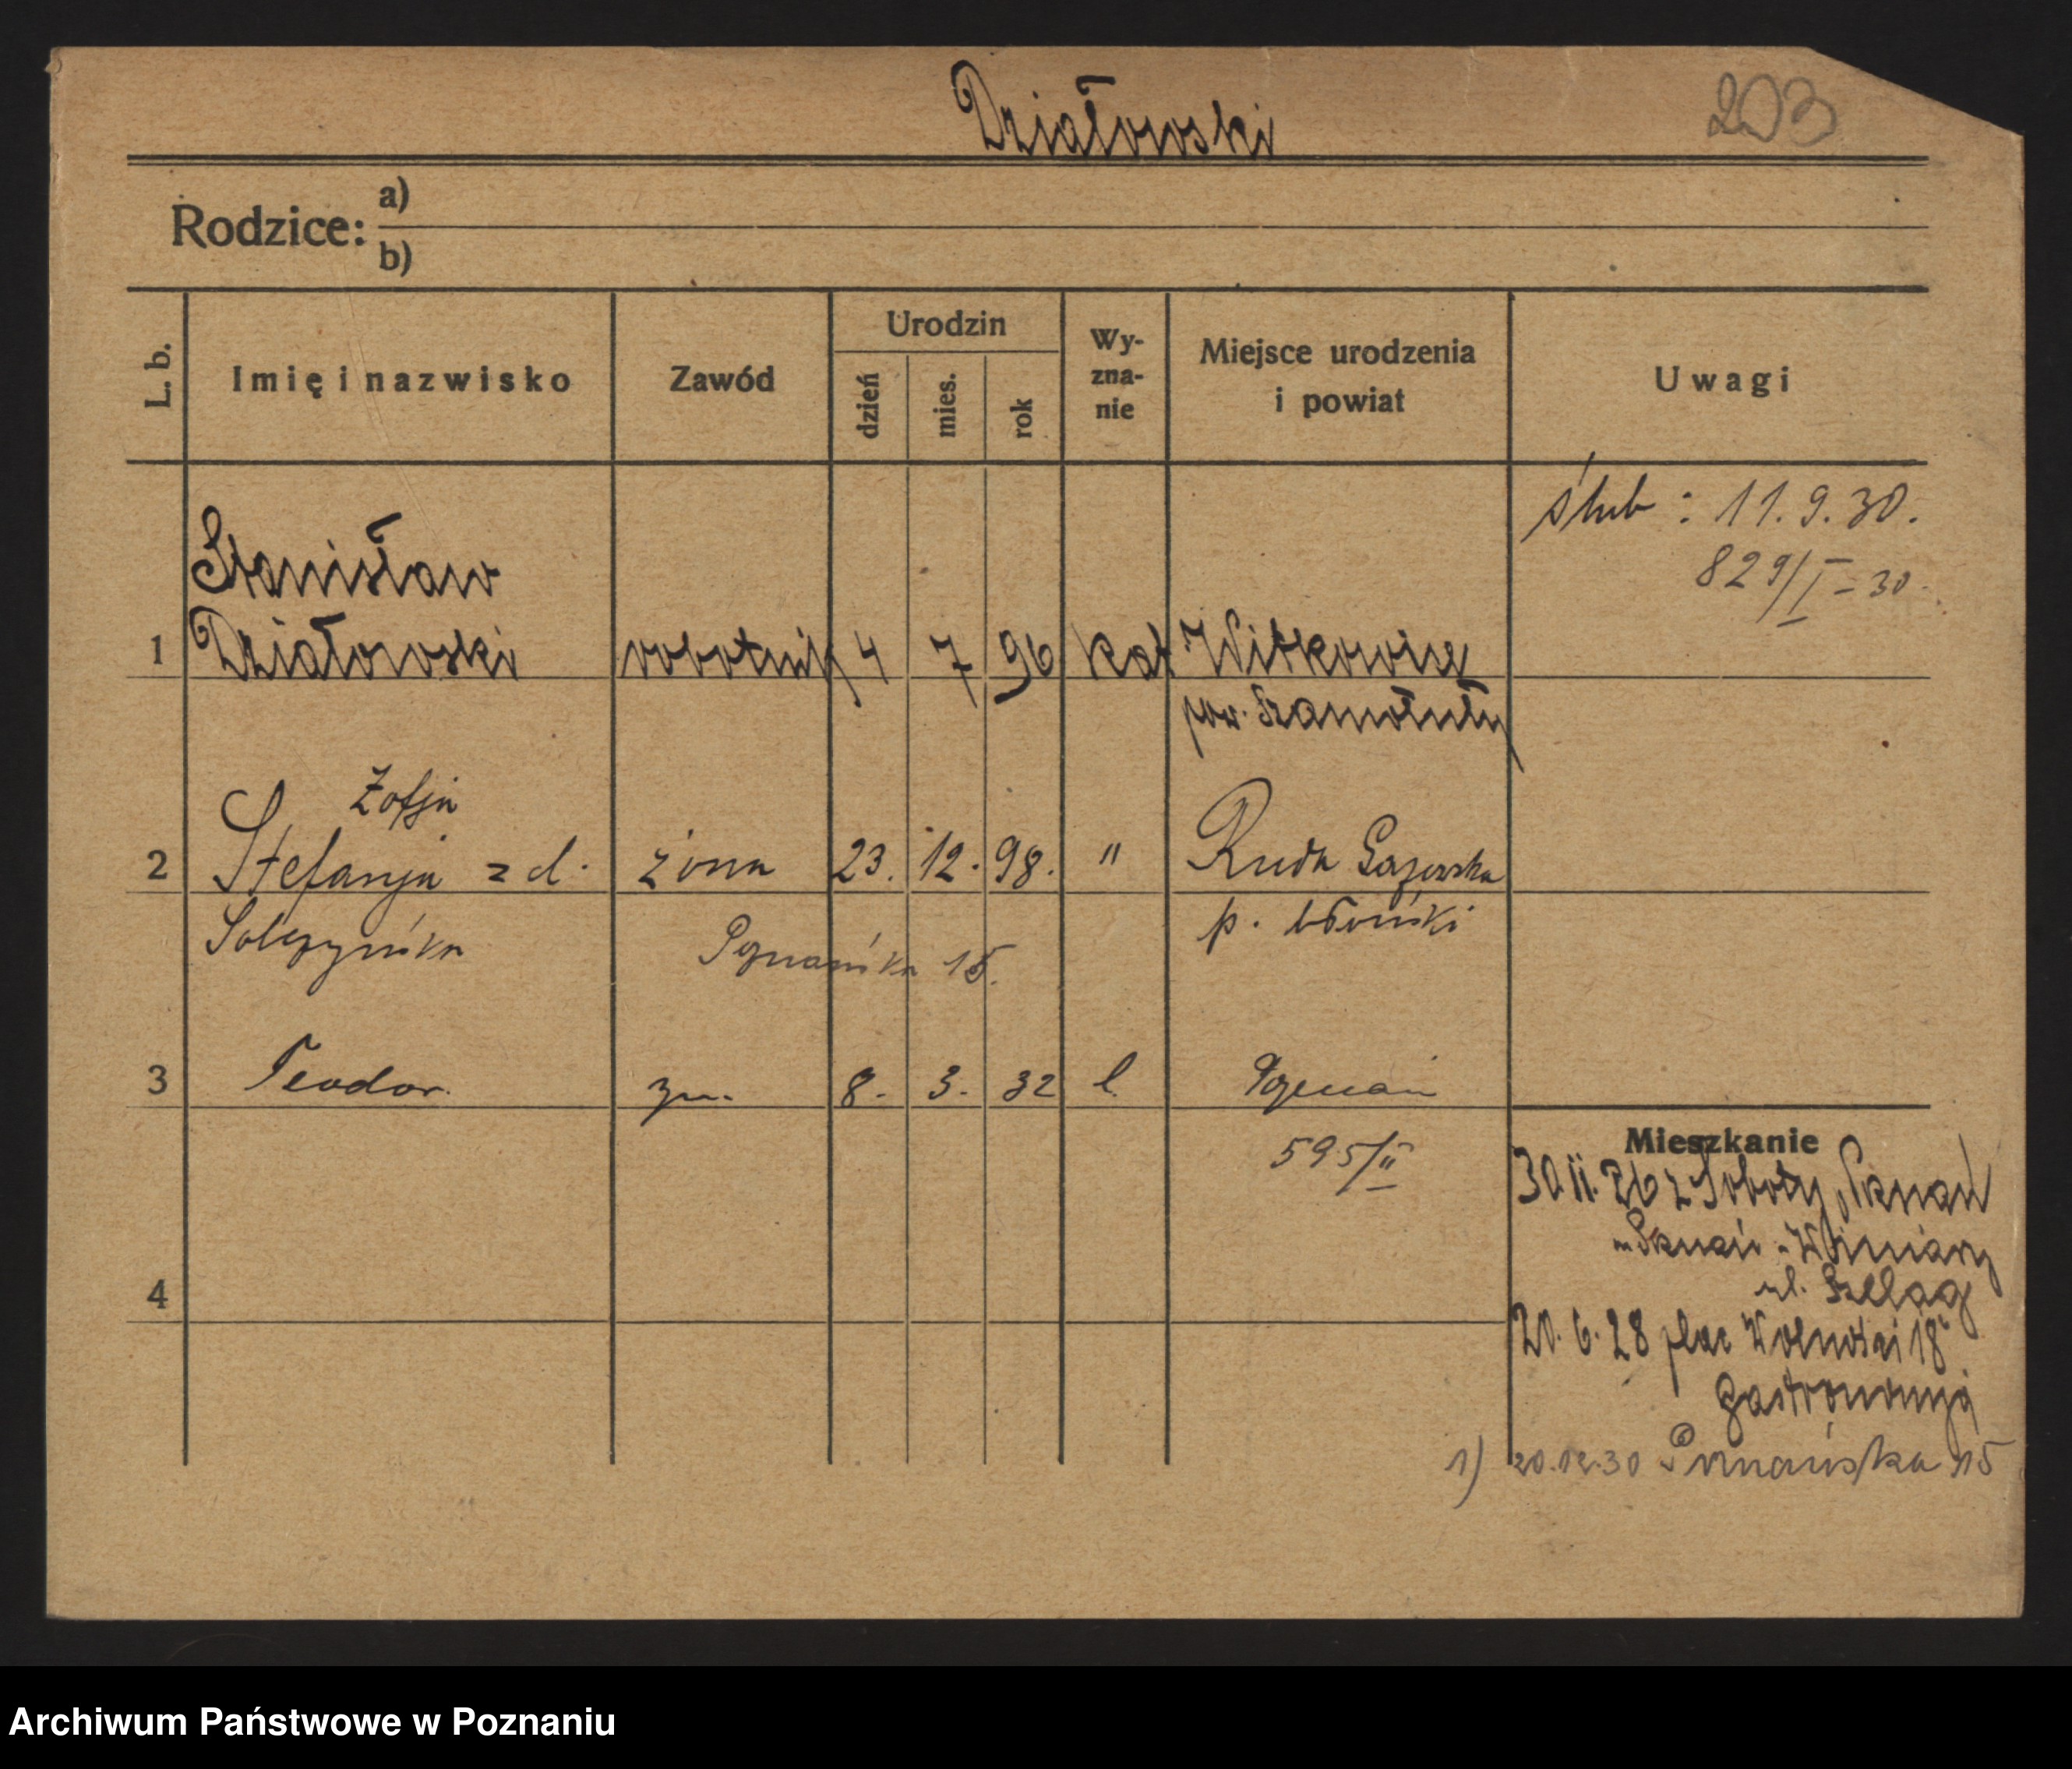 Działowski
203
Rodzice: a)
b)
L. b.
Imię i nazwisko
Zawód
Urodzin
dzień
mies.
rok
Wy-
zna-
nie
Miejsce urodzenia
i powiat
Uwagi
ślub: 11.9.30.
829/I-30.
Stanisław
1 Działowski robotnik 4 7 96 Kat. Witkowice
pow. Szamotuły
Zofja
2 Stefanja z d. żona 23. 12. 98. " Ruda
p. błoński
Poznańska 15.
3 Teodor. 8. 3. 32 Poznań
595/II
4
Mieszkanie
30 11. 26 z Soboty, Poznań
Poznań-Winiary
ul. Szeląg
20. 6. 28 plac Wolności 18
Gastronomja
1) 20.12.30 Poznańska 15
Archiwum Państwowe w Poznaniu